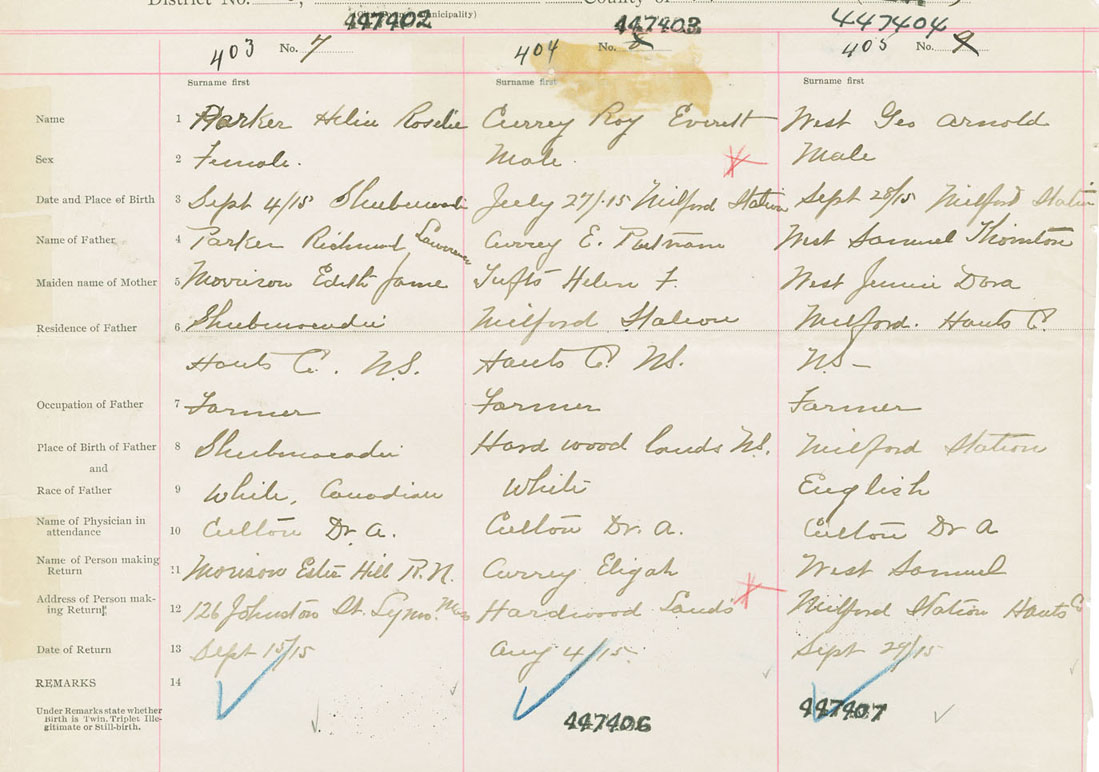 District No. County of
(City Town or Municipality)
447402 447403 447404
403 No. 7 404 No. 8 405 No. 9
Surname first Surname first Surname first
Name 1 Parker Helen Roselie Currey Roy Everett West Geo Arnold
Sex 2 Female. Male. Male
Date and Place of Birth 3 Sept 4/15 Shubenacadie July 27/15 Milford Station Sept 28/15 Milford Station
Name of Father 4 Parker Richmond Lawrence Currey E. Putnam West Samuel Thornton
Maiden name of Mother 5 Morrison Edith Jane Tufts Helen F. West Jennie Dora
Residence of Father 6 Shubenacadie Milford Station Milford. Hants C.
Hants C. N.S. Hants C. N.S. N.S-
Occupation of Father 7 Farmer Farmer Farmer
Place of Birth of Father 8 Shubenacadie Hard wood lands N.S. Milford Station
and
Race of Father 9 White, Canadian White English
Name of Physician in
attendance 10 Culton Dr. A. Culton Dr. A. Culton Dr A
Name of Person making
Return 11 Morison Hill R.N. Currey Elijah West Samuel
Address of Person mak-
ing Return 12 126 Johnston St. Lynn. Mass Hardwood Lands Milford Station Hants Co
Date of Return 13 Sept 15/15 Aug 4/15. Sept 29/15
REMARKS 14
Under Remarks state whether
Birth is Twin, Triplet Ille-
gitimate or Still-birth.
447406 447407